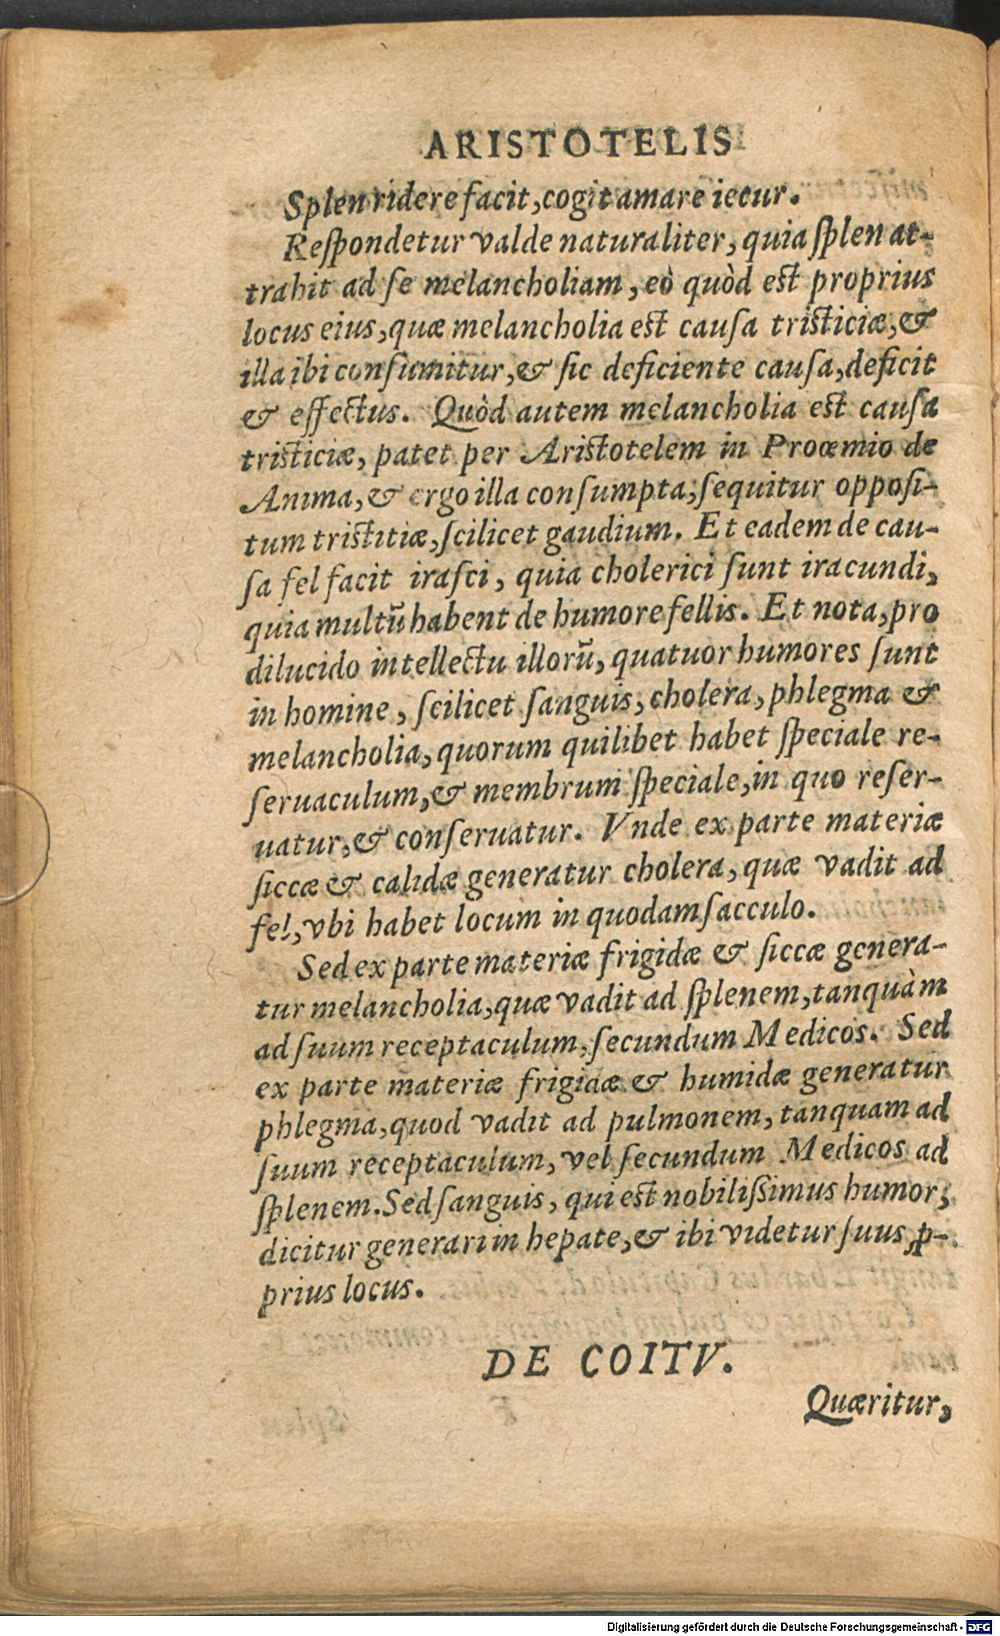 ARISTOTELIS
Splen ridere facit, cogit amare iecur.
Reſpondetur valde naturaliter, quia ſplen at-
trahit ad ſe melancholiam, eò quòd eſt proprius
locus eius, quæ melancholia eſt cauſa triſticiæ, &
illa ibi conſumitur, & ſic deficiente cauſa, deficit
& effectus. Quòd autem melancholia eſt cauſa
triſticiæ, patet per Ariſtotelem in Proœmio de
Anima, & ergo illa conſumpta, ſequitur oppoſi-
tum triſtitiæ, ſcilicet gaudium. Et eadem de cau-
ſa fel facit iraſci, quia cholerici ſunt iracundi,
quia multū habent de humore fellis. Et nota, pro
dilucido intellectu illorū, quatuor humores ſunt
in homine, ſcilicet ſanguis, cholera, phlegma &
melancholia, quorum quilibet habet ſpeciale re-
ſeruaculum, & membrum ſpeciale, in quo reſer-
uatur, & conſeruatur. Vnde ex parte materiæ
ſiccæ & calidæ generatur cholera, quæ vadit ad
fel, vbi habet locum in quodam ſacculo.
Sed ex parte materiæ frigidæ & ſiccæ genera-
tur melancholia, quæ vadit ad ſplenem, tanquàm
ad ſuum receptaculum, ſecundum Medicos. Sed
ex parte materiæ frigidæ & humidæ generatur
phlegma, quod vadit ad pulmonem, tanquam ad
ſuum receptaculum, vel ſecundum Medicos ad
ſplenem. Sed ſanguis, qui eſt nobiliſsimus humor,
dicitur generari in hepate, & ibi videtur ſuus ꝓ-
prius locus.
DE COITV.
Quæritur,
Digitalisierung gefördert durch die Deutsche Forschungsgemeinschaft - DFG